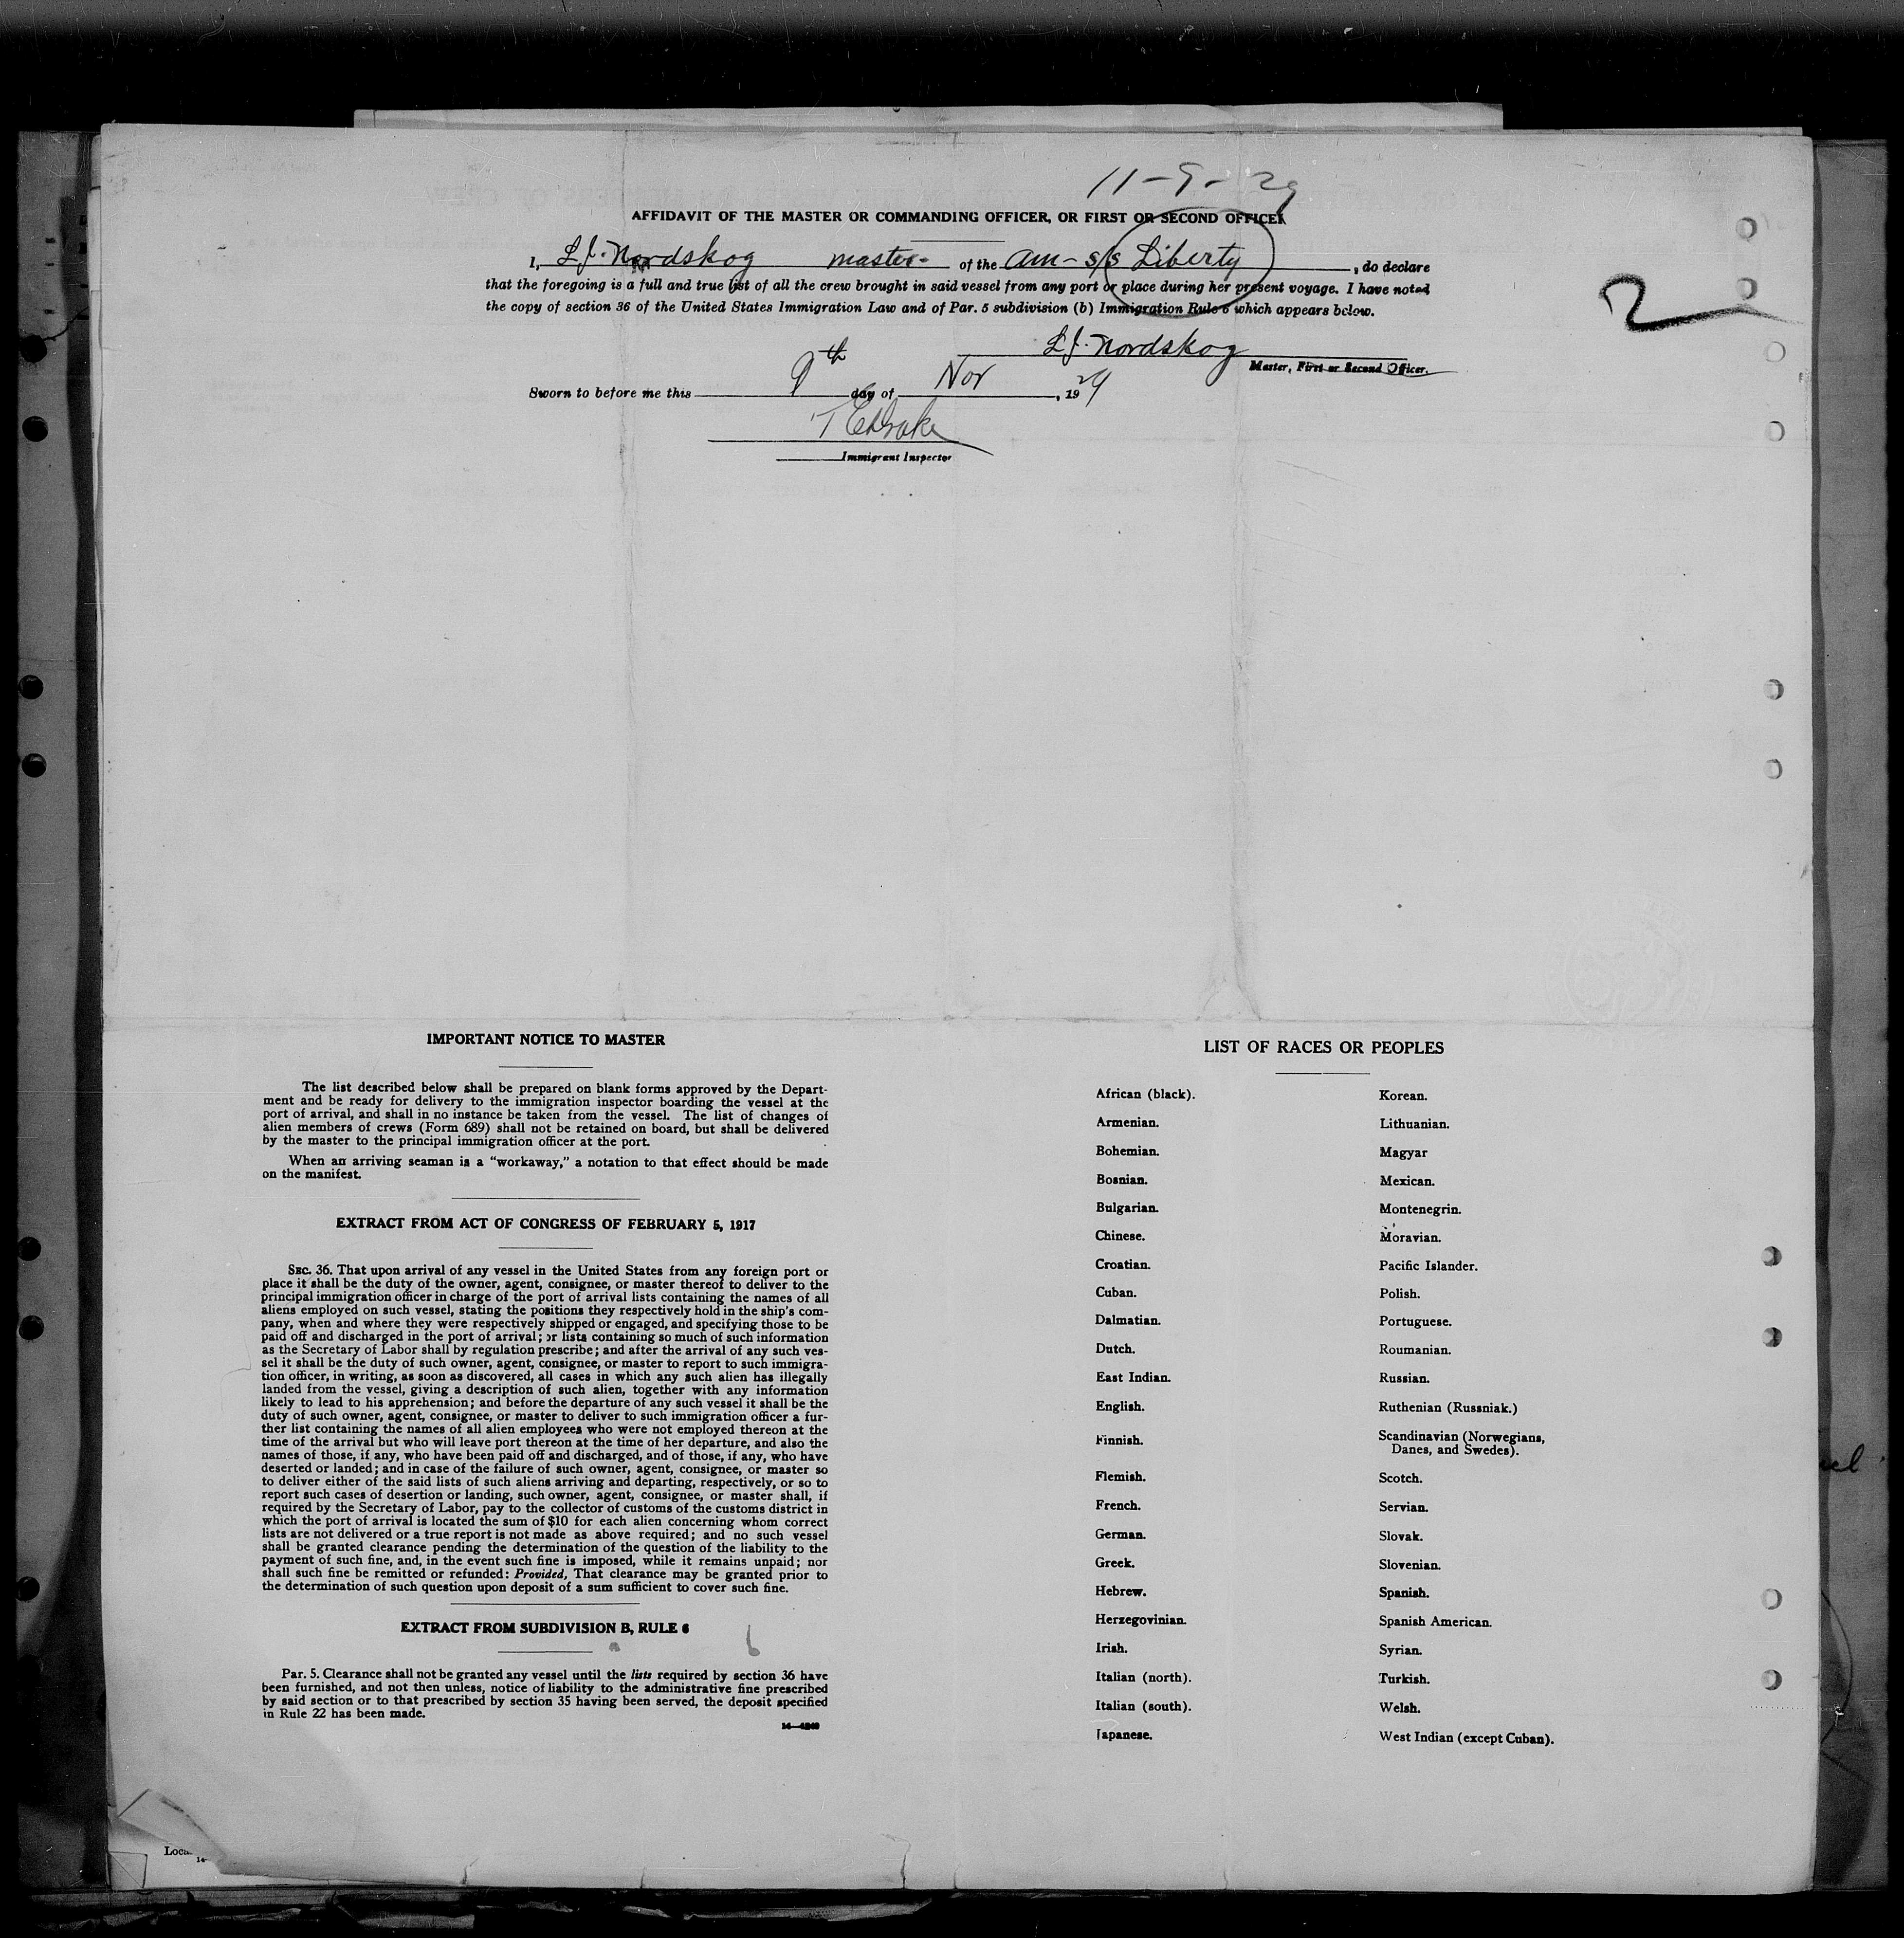 11-9-29
AFFIDAVIT OF THE MASTER OR COMMANDING OFFICER, OR FIRST OR SECOND OFFICER
I, L.J. Nordskog master of the Am- S/S Liberty, do declare
that the foregoing is a full and true list of all the crew brought in said vessel from any port or place during her present voyage. I have noted
the copy of section 36 of the United States Immigration Law and of Par. 5 subdivision (b) Immigration Rule 6 which appears below.
2
L.J. Nordskog
Master, First or Second Officer.
Sworn to before me this 9th day of Nov, 1929
Immigrant Inspector
IMPORTANT NOTICE TO MASTER
The list described below shall be prepared on blank forms approved by the Depart-
ment and be ready for delivery to the immigration inspector boarding the vessel at the
port of arrival, and shall in no instance be taken from the vessel. The list of changes of
alien members of crews (Form 689) shall not be retained on board, but shall be delivered
by the master to the principal immigration officer at the port.
When an arriving seaman is a "workaway," a notation to that effect should be made
on the manifest.
EXTRACT FROM ACT OF CONGRESS OF FEBRUARY 5, 1917
SEC. 36. That upon arrival of any vessel in the United States from any foreign port or
place it shall be the duty of the owner, agent, consignee, or master thereof to deliver to the
principal immigration officer in charge of the port of arrival lists containing the names of all
aliens employed on such vessel, stating the positions they respectively hold in the ship's com-
pany, when and where they were respectively shipped or engaged, and specifying those to be
paid off and discharged in the port of arrival; or lists containing so much of such information
as the Secretary of Labor shall by regulation prescribe; and after the arrival of any such ves-
sel it shall be the duty of such owner, agent, consignee, or master to report to such immigra-
tion officer, in writing, as soon as discovered, all cases in which any such alien has illegally
landed from the vessel, giving a description of such alien, together with any information
likely to lead to his apprehension; and before the departure of any such vessel it shall be the
duty of such owner, agent, consignee, or master to deliver to such immigration officer a fur-
ther list containing the names of all alien employees who were not employed thereon at the
time of the arrival but who will leave port thereon at the time of her departure, and also the
names of those, if any, who have been paid off and discharged, and of those, if any, who have
deserted or landed; and in case of the failure of such owner, agent, consignee, or master so
to deliver either of the said lists of such aliens arriving and departing, respectively, or so to
report such cases of desertion or landing, such owner, agent, consignee, or master shall, if
required by the Secretary of Labor, pay to the collector of customs of the customs district in
which the port of arrival is located the sum of $10 for each alien concerning whom correct
lists are not delivered or a true report is not made as above required; and no such vessel
shall be granted clearance pending the determination of the question of the liability to the
payment of such fine, and, in the event such fine is imposed, while it remains unpaid; nor
shall such fine be remitted or refunded: Provided, That clearance may be granted prior to
the determination of such question upon deposit of a sum sufficient to cover such fine.
EXTRACT FROM SUBDIVISION B, RULE 6
Par. 5. Clearance shall not be granted any vessel until the lists required by section 36 have
been furnished, and not then unless, notice of liability to the administrative fine prescribed
by said section or to that prescribed by section 35 having been served, the deposit specified
in Rule 22 has been made.
LIST OF RACES OR PEOPLES
African (black).
Armenian.
Bohemian.
Bosnian.
Bulgarian.
Chinese.
Croatian.
Cuban.
Dalmatian.
Dutch.
East Indian.
English.
Finnish.
Flemish.
French.
German.
Greek.
Hebrew.
Herzegovinian.
Irish.
Italian (north).
Italian (south).
Japanese.
Korean.
Lithuanian.
Magyar
Mexican.
Montenegrin.
Moravian.
Pacific Islander.
Polish.
Portuguese.
Roumanian.
Russian.
Ruthenian (Russniak.)
Scandinavian (Norwegians,
Danes, and Swedes).
Scotch.
Servian.
Slovak.
Slovenian.
Spanish.
Spanish American.
Syrian.
Turkish.
Welsh.
West Indian (except Cuban).